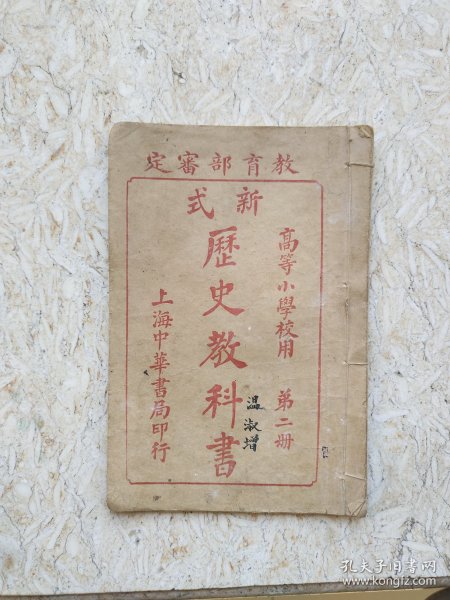 教育部審定
新式
高等小學校用 第二册
歷史教科書
溫淑增
上海中華書局印行
孔夫子旧书网
www.kongfz.com